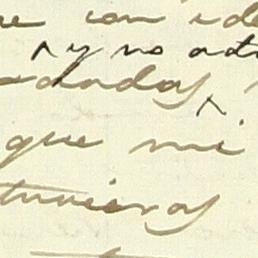 con ide
y no ad
dudas,
que mi
tuvieras